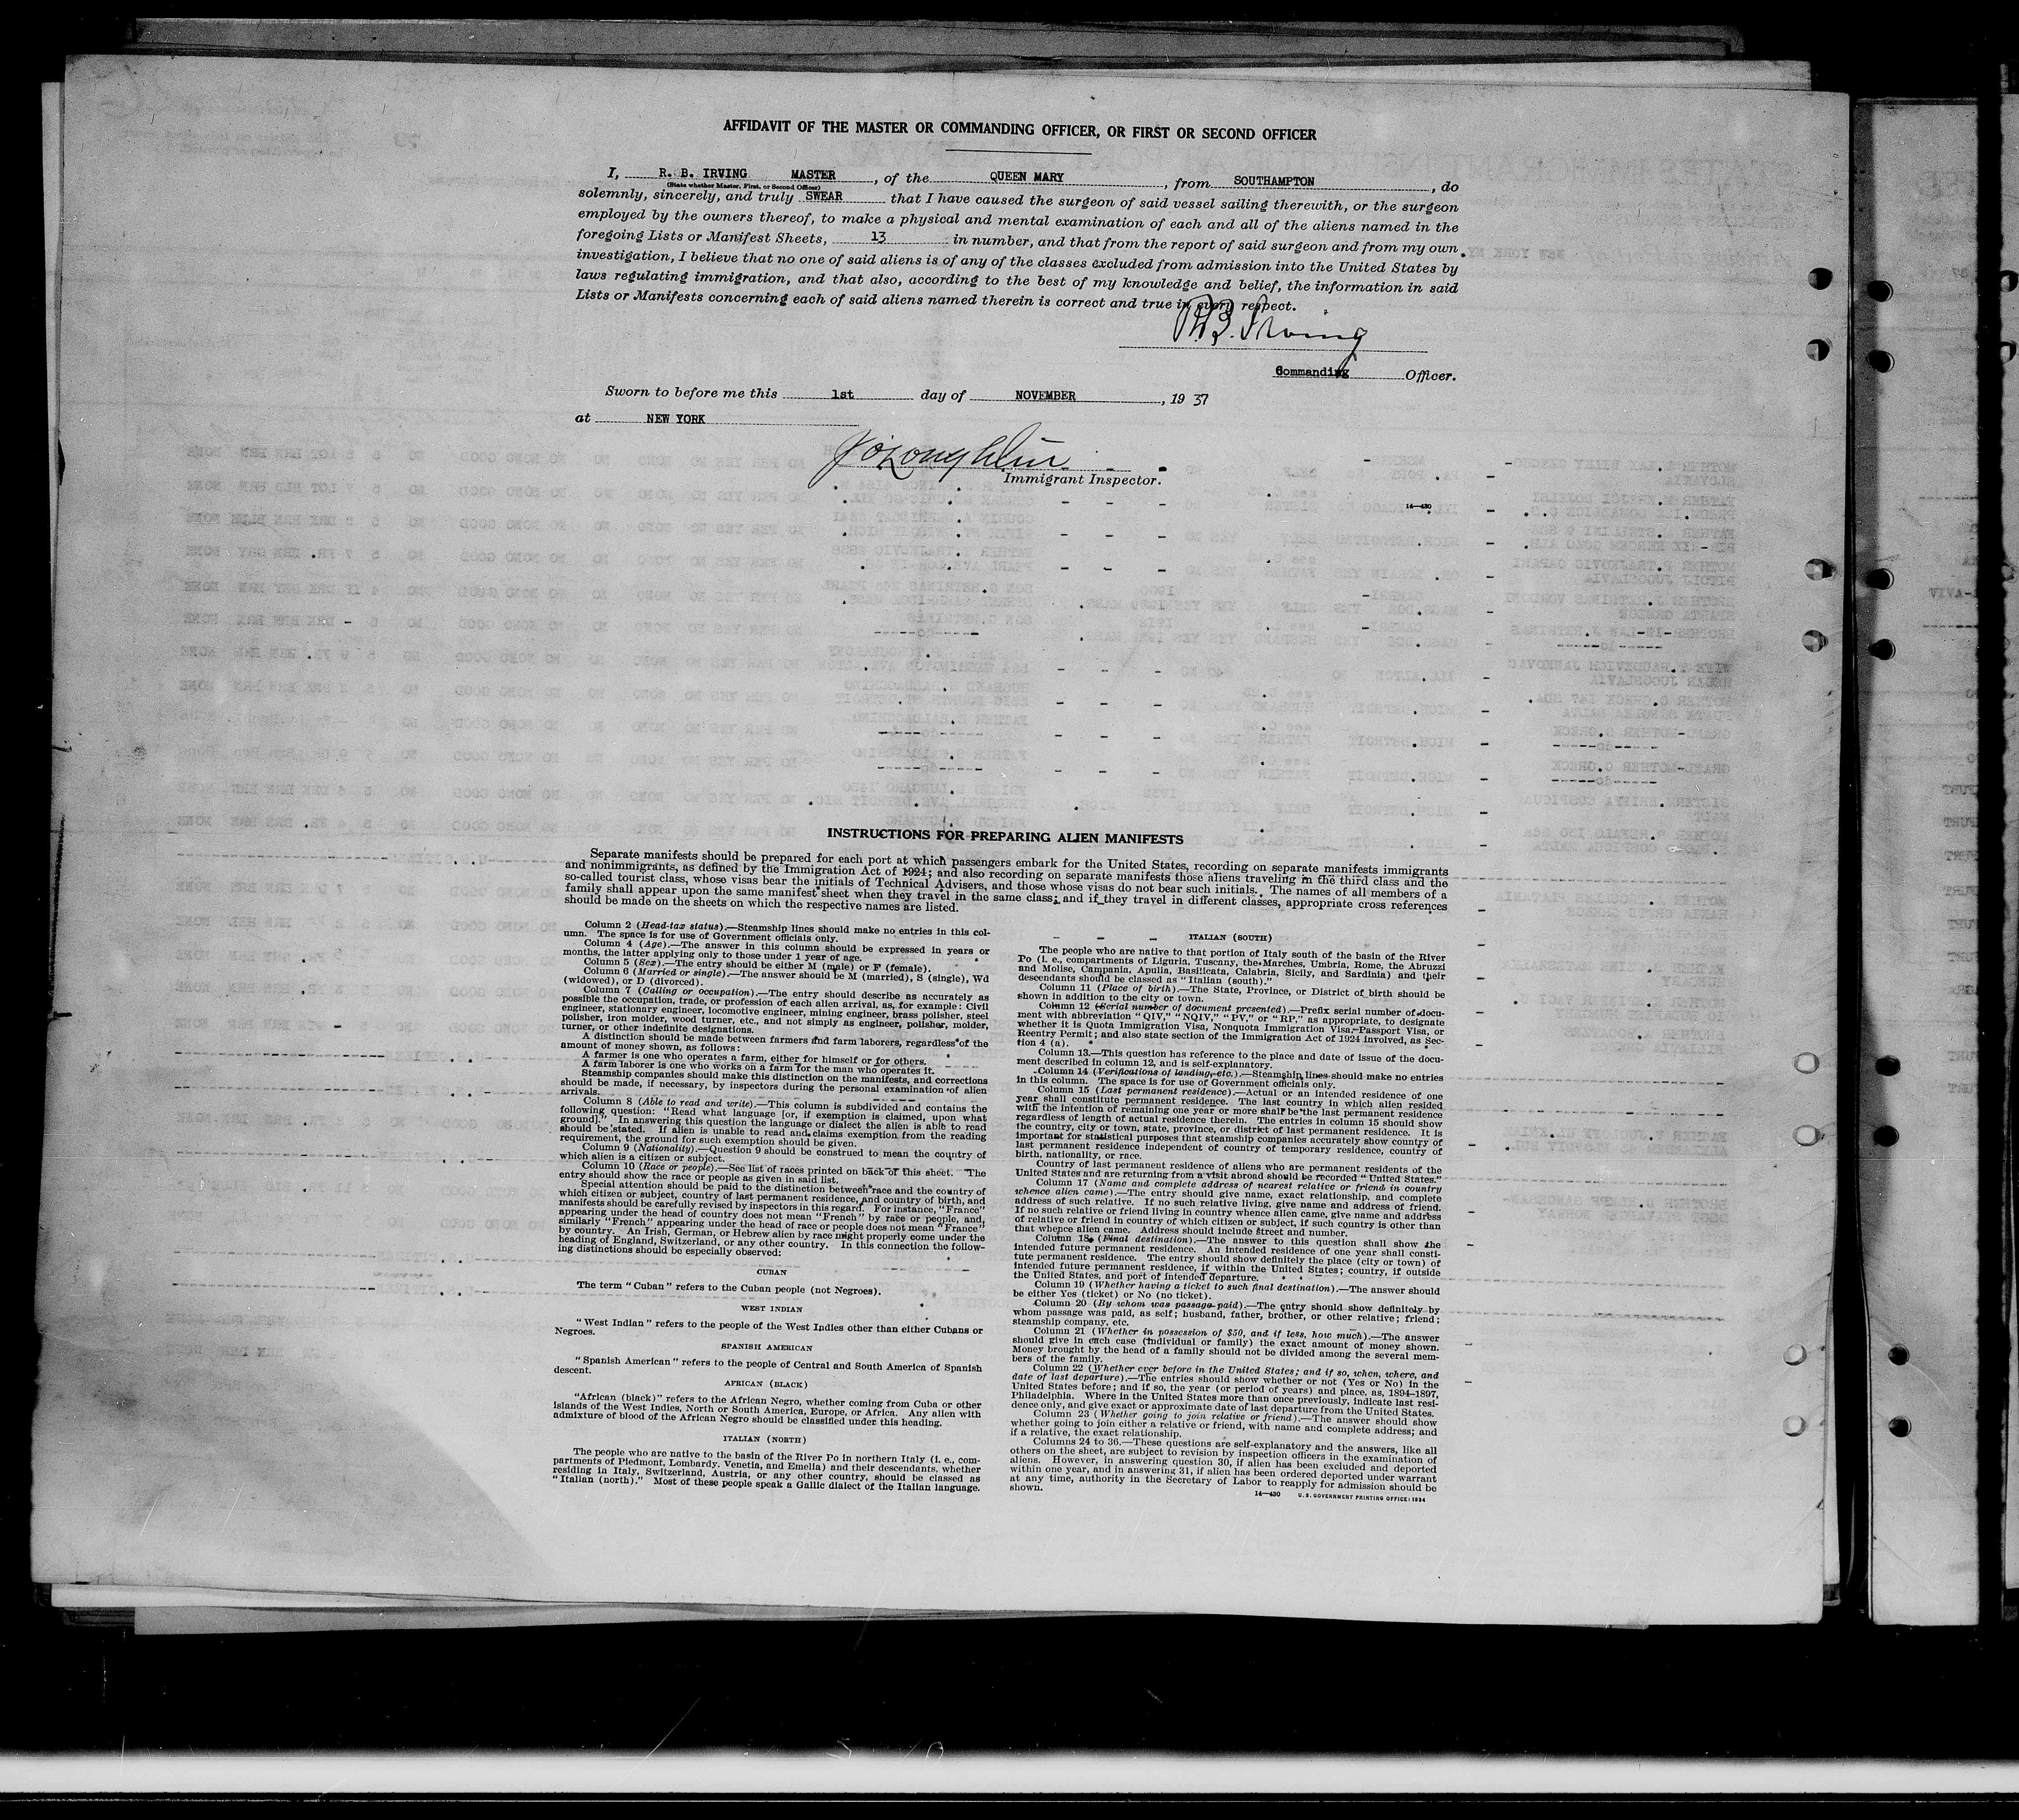 AFFIDAVIT OF THE MASTER OR COMMANDING OFFICER, OR FIRST OR SECOND OFFICER
I, R. B. IRVING MASTER, of the QUEEN MARY, from SOUTHAMPTON, do
(State whether Master, First, or Second Officer)
solemnly, sincerely, and truly SWEAR that I have caused the surgeon of said vessel sailing therewith, or the surgeon
employed by the owners thereof, to make a physical and mental examination of each and all of the aliens named in the
foregoing Lists or Manifest Sheets, 13 in number, and that from the report of said surgeon and from my own
investigation, I believe that no one of said aliens is of any of the classes excluded from admission into the United States by
laws regulating immigration, and that also, according to the best of my knowledge and belief, the information in said
Lists or Manifests concerning each of said aliens named therein is correct and true in every respect.
R.B. Irving
Commanding Officer.
Sworn to before me this 1st day of NOVEMBER, 19 37
at NEW YORK
J O'Loughlin
Immigrant Inspector.
14—430
INSTRUCTIONS FOR PREPARING ALIEN MANIFESTS
Separate manifests should be prepared for each port at which passengers embark for the United States, recording on separate manifests immigrants
and nonimmigrants, as defined by the Immigration Act of 1924; and also recording on separate manifests those aliens traveling in the third class and the
so-called tourist class, whose visas bear the initials of Technical Advisers, and those whose visas do not bear such initials. The names of all members of a
family shall appear upon the same manifest sheet when they travel in the same class; and if they travel in different classes, appropriate cross references
should be made on the sheets on which the respective names are listed.
Column 2 (Head-tax status).—Steamship lines should make no entries in this col-
umn. The space is for use of Government officials only.
Column 4 (Age).—The answer in this column should be expressed in years or
months, the latter applying only to those under 1 year of age.
Column 5 (Sex).—The entry should be either M (male) or F (female).
Column 6 (Married or single).—The answer should be M (married), S (single), Wd
(widowed), or D (divorced).
Column 7 (Calling or occupation).—The entry should describe as accurately as
possible the occupation, trade, or profession of each alien arrival, as, for example: Civil
engineer, stationary engineer, locomotive engineer, mining engineer, brass polisher, steel
polisher, iron molder, wood turner, etc., and not simply as engineer, polisher, molder,
turner, or other indefinite designations.
A distinction should be made between farmers and farm laborers, regardless of the
amount of money shown, as follows:
A farmer is one who operates a farm, either for himself or for others.
A farm laborer is one who works on a farm for the man who operates it.
Steamship companies should make this distinction on the manifests, and corrections
should be made, if necessary, by inspectors during the personal examination of alien
arrivals.
Column 8 (Able to read and write).—This column is subdivided and contains the
following question: "Read what language [or, if exemption is claimed, upon what
ground]." In answering this question the language or dialect the alien is able to read
should be stated. If alien is unable to read and claims exemption from the reading
requirement, the ground for such exemption should be given.
Column 9 (Nationality).—Question 9 should be construed to mean the country of
which alien is a citizen or subject.
Column 10 (Race or people).—See list of races printed on back of this sheet. The
entry should show the race or people as given in said list.
Special attention should be paid to the distinction between race and the country of
which citizen or subject, country of last permanent residence, and country of birth, and
manifests should be carefully revised by inspectors in this regard. For instance, "France"
appearing under the head of country does not mean "French" by race or people, and,
similarly "French" appearing under the head of race or people does not mean "France",
by country. An Irish, German, or Hebrew alien by race might properly come under the
heading of England, Switzerland, or any other country. In this connection the follow-
ing distinctions should be especially observed:
CUBAN
The term "Cuban" refers to the Cuban people (not Negroes).
WEST INDIAN
"West Indian" refers to the people of the West Indies other than either Cubans or
Negroes.
SPANISH AMERICAN
"Spanish American" refers to the people of Central and South America of Spanish
descent.
AFRICAN (BLACK)
"African (black)" refers to the African Negro, whether coming from Cuba or other
islands of the West Indies, North or South America, Europe, or Africa. Any alien with
admixture of blood of the African Negro should be classified under this heading.
ITALIAN (NORTH)
The people who are native to the basin of the River Po in northern Italy (i. e., com-
partments of Piedmont, Lombardy, Venetia, and Emelia) and their descendants, whether
residing in Italy, Switzerland, Austria, or any other country, should be classed as
"Italian (north)." Most of these people speak a Gallic dialect of the Italian language.
ITALIAN (SOUTH)
The people who are native to that portion of Italy south of the basin of the River
Po (i. e., compartments of Liguria, Tuscany, the Marches, Umbria, Rome, the Abruzzi
and Molise, Campania, Apulia, Basilicata, Calabria, Sicily, and Sardinia) and their
descendants should be classed as "Italian (south)."
Column 11 (Place of birth).—The State, Province, or District of birth should be
shown in addition to the city or town.
Column 12 (Serial number of document presented).—Prefix serial number of docu-
ment with abbreviation "QIV," "NQIV," "PV," or "RP," as appropriate, to designate
whether it is Quota Immigration Visa, Nonquota Immigration Visa, Passport Visa, or
Reentry Permit; and also state section of the Immigration Act of 1924 involved, as Sec-
tion 4 (a).
Column 13.—This question has reference to the place and date of issue of the docu-
ment described in column 12, and is self-explanatory.
Column 14 (Verifications of landing, etc.).—Steamship lines should make no entries
in this column. The space is for use of Government officials only.
Column 15 (Last permanent residence).—Actual or an intended residence of one
year shall constitute permanent residence. The last country in which alien resided
with the intention of remaining one year or more shall be the last permanent residence
regardless of length of actual residence therein. The entries in column 15 should show
the country, city or town, state, province, or district of last permanent residence. It is
important for statistical purposes that steamship companies accurately show country of
last permanent residence independent of country of temporary residence, country of
birth, nationality, or race.
Country of last permanent residence of aliens who are permanent residents of the
United States and are returning from a visit abroad should be recorded "United States."
Column 17 (Name and complete address of nearest relative or friend in country
whence alien came).—The entry should give name, exact relationship, and complete
address of such relative. If no such relative living, give name and address of friend.
If no such relative or friend living in country whence alien came, give name and address
of relative or friend in country of which citizen or subject, if such country is other than
that whence alien came. Address should include street and number.
Column 18. (Final destination).—The answer to this question shall show the
intended future permanent residence. An intended residence of one year shall consti-
tute permanent residence. The entry should show definitely the place (city or town) of
intended future permanent residence, if within the United States; country, if outside
the United States, and port of intended departure.
Column 19 (Whether having a ticket to such final destination).—The answer should
be either Yes (ticket) or No (no ticket).
Column 20 (By whom was passage paid).—The entry should show definitely by
whom passage was paid, as self; husband, father, brother, or other relative; friend;
steamship company, etc.
Column 21 (Whether in possession of $50, and if less, how much).—The answer
should give in each case (individual or family) the exact amount of money shown.
Money brought by the head of a family should not be divided among the several mem-
bers of the family.
Column 22 (Whether ever before in the United States; and if so, when, where, and
date of last departure).—The entries should show whether or not (Yes or No) in the
United States before; and if so, the year (or period of years) and place, as, 1894–1897,
Philadelphia. Where in the United States more than once previously, indicate last resi-
dence only, and give exact or approximate date of last departure from the United States.
Column 23 (Whether going to join relative or friend).—The answer should show
whether going to join either a relative or friend, with name and complete address; and
if a relative, the exact relationship.
Columns 24 to 36.—These questions are self-explanatory and the answers, like all
others on the sheet, are subject to revision by inspection officers in the examination of
aliens. However, in answering question 30, if alien has been excluded and deported
within one year, and in answering 31, if alien has been ordered deported under warrant
at any time, authority in the Secretary of Labor to reapply for admission should be
shown.
14—430 U. S. GOVERNMENT PRINTING OFFICE: 1934